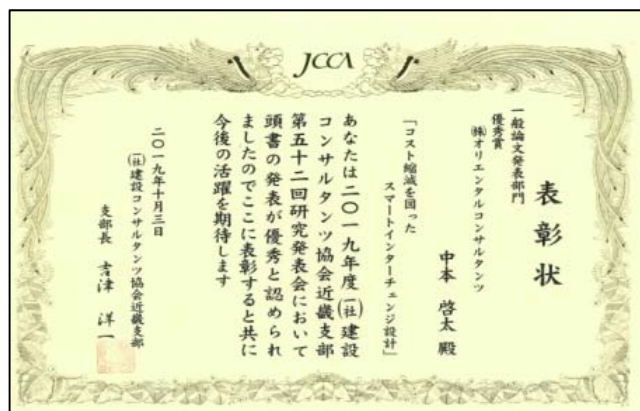 JCCA
表彰状
一般論文発表部門
優秀賞
㈱オリエンタルコンサルタンツ
中本 啓太 殿
「コスト縮減を図った
スマートインターチェンジ設計」
あなたは二〇一九年度(一社)建設
コンサルタンツ協会近畿支部
第五十二回研究発表会において
頭書の発表が優秀と認められ
ましたのでここに表彰すると共に
今後の活躍を期待します
二〇一九年十月三日
(一社)建設コンサルタンツ協会近畿支部
支部長 吉津 洋一